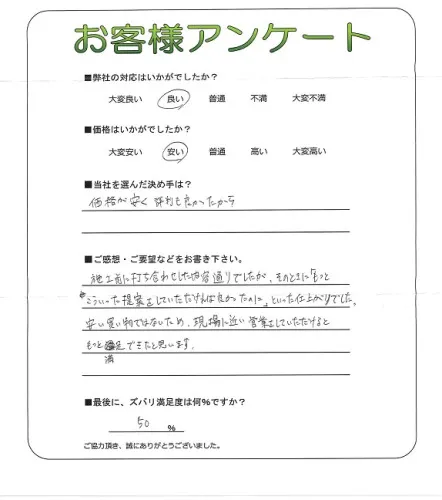 お客様アンケート
■弊社の対応はいかがでしたか?
大変良い 良い 普通 不満 大変不満
■価格はいかがでしたか?
大変安い 安い 普通 高い 大変高い
■当社を選んだ決め手は?
価格が安く 評判も良かったから
■ご感想・ご要望などをお書き下さい。
施工前に打ち合わせした内容通りでしたが、そのときに「もっと
こういった提案をしていただければ良かったのに」といった仕上がりでした。
安い買い物ではないため、現場に近い営業をしていただけると
もっと満足できたと思います。
■最後に、ズバリ満足度は何%ですか?
50 %
ご協力頂き、誠にありがとうございました。